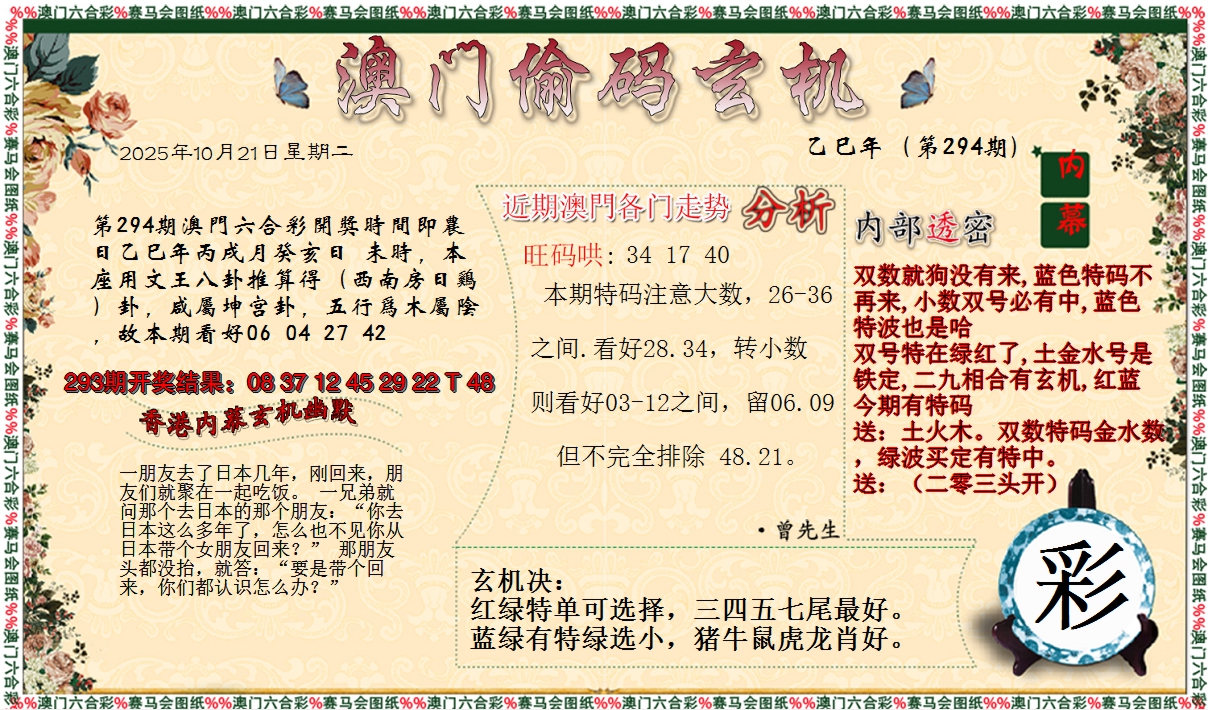 %%澳门六合彩%赛马会图纸%%澳门六合彩%赛马会图纸%%澳门六合彩%赛马会图纸%%澳门六合彩%赛马会图纸%%澳门六合彩%赛马会图纸%%澳门六合彩%赛马会图纸%%
澳门偷码玄机
2025年10月21日星期二
乙巳年（第294期）
内幕
第294期澳門六合彩開獎時間即農
日乙巳年丙戌月癸亥日 未時，本
座用文王八卦推算得（西南房日鷄
）卦，咸屬坤宫卦，五行爲木屬陰
，故本期看好06 04 27 42
293期开奖结果：08 37 12 45 29 22 T 48
香港内幕玄机幽默
一朋友去了日本几年，刚回来，朋
友们就聚在一起吃饭。 一兄弟就
问那个去日本的那个朋友：“你去
日本这么多年了，怎么也不见你从
日本带个女朋友回来？” 那朋友
头都没抬，就答：“要是带个回
来，你们都认识怎么办？”
近期澳門各门走势 分析
旺码哄: 34 17 40
本期特码注意大数，26-36
之间.看好28.34，转小数
则看好03-12之间，留06.09
但不完全排除 48.21。
·曾先生
内部透密
双数就狗没有来,蓝色特码不
再来,小数双号必有中,蓝色
特波也是哈
双号特在绿红了,土金水号是
铁定,二九相合有玄机,红蓝
今期有特码
送：土火木。双数特码金水数
，绿波买定有特中。
送：（二零三头开）
玄机决：
红绿特单可选择，三四五七尾最好。
蓝绿有特绿选小，猪牛鼠虎龙肖好。
彩
%%澳门六合彩%赛马会图纸%%澳门六合彩%赛马会图纸%%澳门六合彩%赛马会图纸%%澳门六合彩%赛马会图纸%%澳门六合彩%赛马会图纸%%澳门六合彩%赛马会图纸%%